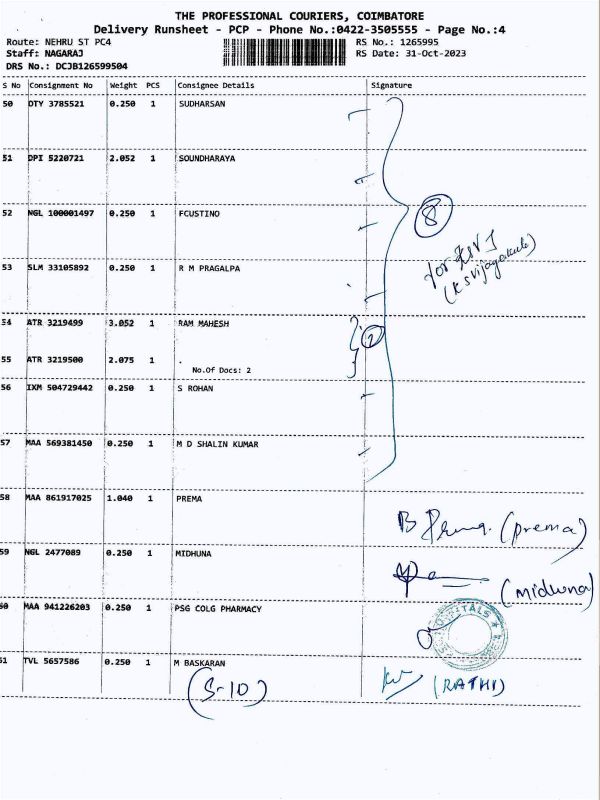 THE PROFESSIONAL COURIERS, COIMBATORE
Delivery Runsheet - PCP - Phone No.:0422-3505555 - Page No.:4
Route: NEHRU ST PC4 RS No.: 1265995
Staff: NAGARAJ RS Date: 31-Oct-2023
DRS No.: DCJB126599504
S No Consignment No Weight PCS Consignee Details Signature
50 OTY 3785521 0.250 1 SUDHARSAN
51 DPI 5220721 2.052 1 SOUNDHARAYA
8
52 NGL 100001497 0.250 1 FCUSTINO
for KSVJ
(KSVijayakula)
53 SLM 33105892 0.250 1 R M PRAGALPA
54 ATR 3219499 3.052 1 RAM MAHESH
2
55 ATR 3219500 2.075 1 .
No.Of Docs: 2
56 IXM 504729442 0.250 1 S ROHAN
57 MAA 569381450 0.250 1 M D SHALIN KUMAR
58 MAA 861917025 1.040 1 PREMA
B Prema. (prema)
59 NGL 2477089 0.250 1 MIDHUNA
(midhuna)
60 MAA 941226203 0.250 1 PSG COLG PHARMACY
61 TVL 5657586 0.250 1 M BASKARAN
(S-10) (RATHI)